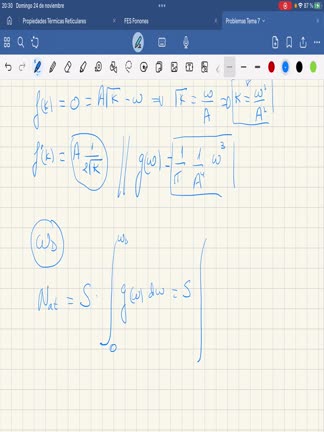 20:30 Domingo 24 de noviembre
87 %
Propiedades Térmicas Reticulares
FES Fonones
Problemas Tema 7
f(k) = 0 = A√K - ω => √K = ω/A => K = ω²/A²
f'(k) = A 1/2√K // g(ω) = 1/π 1/A⁴ ω³
ω_D
N_at = S · ∫₀^ω_D g(ω) dω = S ∫